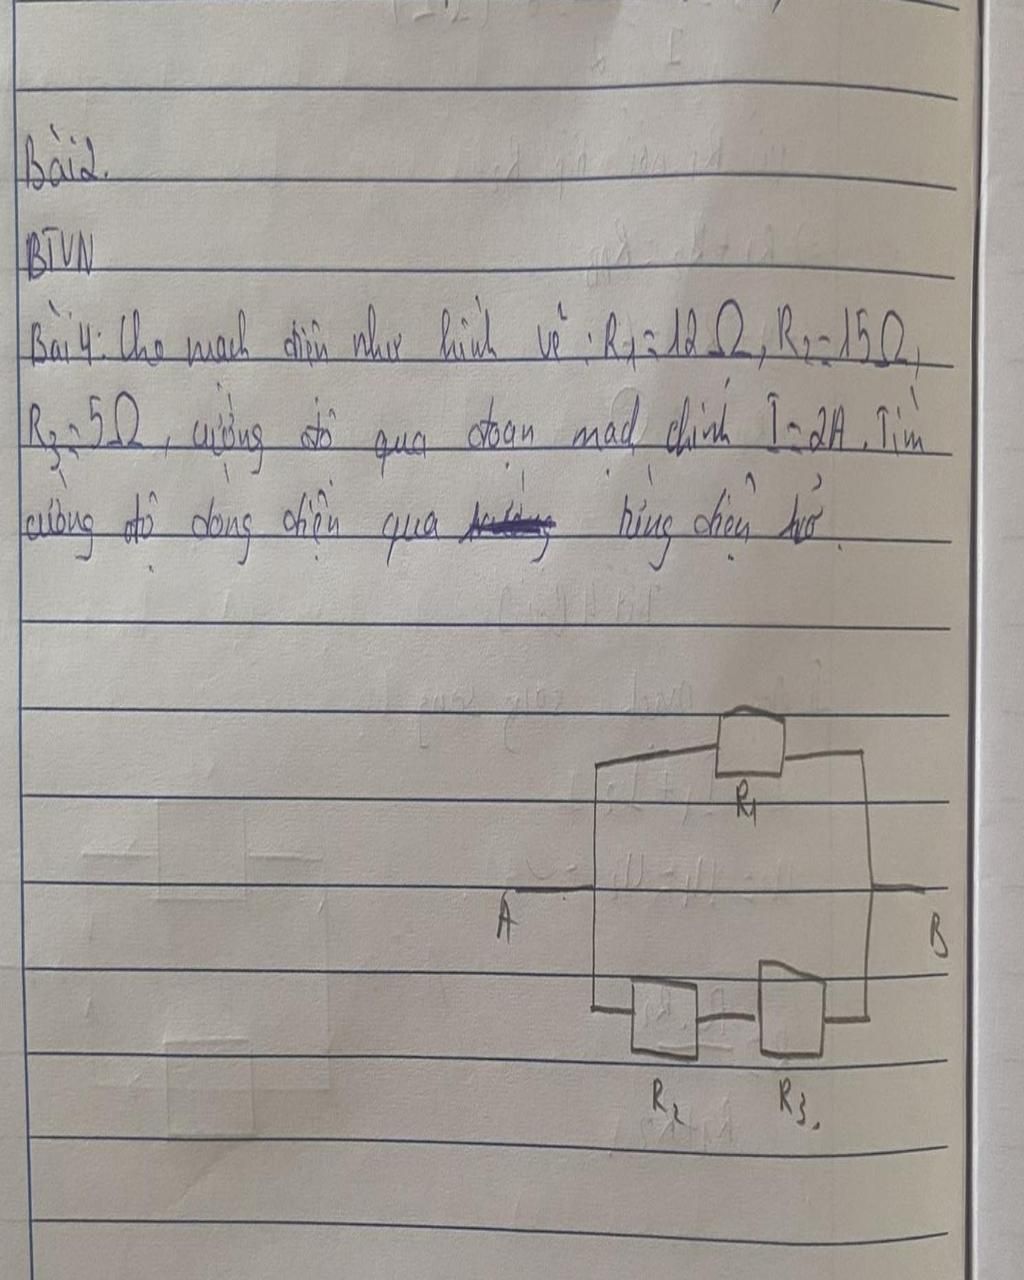 Bài 2.
BTVN
Bài 4: Cho mạch điện như hình vẽ : R1 = 12 Ω, R2 = 15 Ω,
R3 = 5 Ω, cường độ qua đoạn mạch chính I = 2A. Tìm
cường độ dòng điện qua từng điện trở.
R1
A
B
R2 R3.